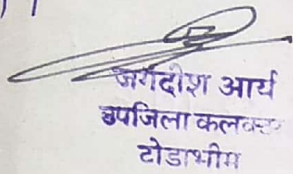 जगदीश आर्य
उपजिला कलक्टर
टोडाभीम